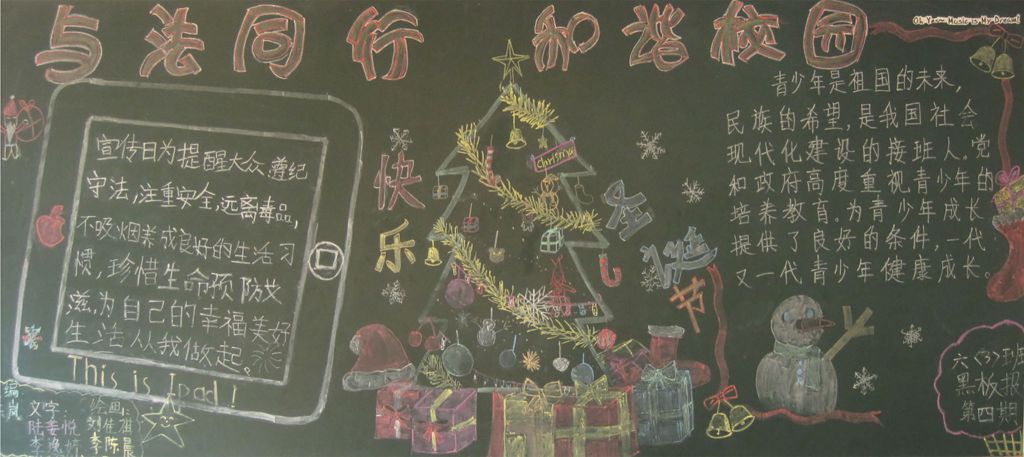 与法同行 和谐校园
Oh Yeah Music is My Dream!
宣传日为提醒大众,遵纪
守法,注重安全,远离毒品,
不吸烟养成良好的生活习
惯,珍惜生命预防火
滋,为自己的幸福美好
生活从我做起。
This is Ipad!
快乐
Christmas
圣诞节
青少年是祖国的未来,
民族的希望,是我国社会
现代化建设的接班人。党
和政府高度重视青少年的
培养教育。为青少年成长
提供了良好的条件,一代
又一代,青少年健康成长。
六〈3〉班
黑板报
第四期
文字: 绘画: